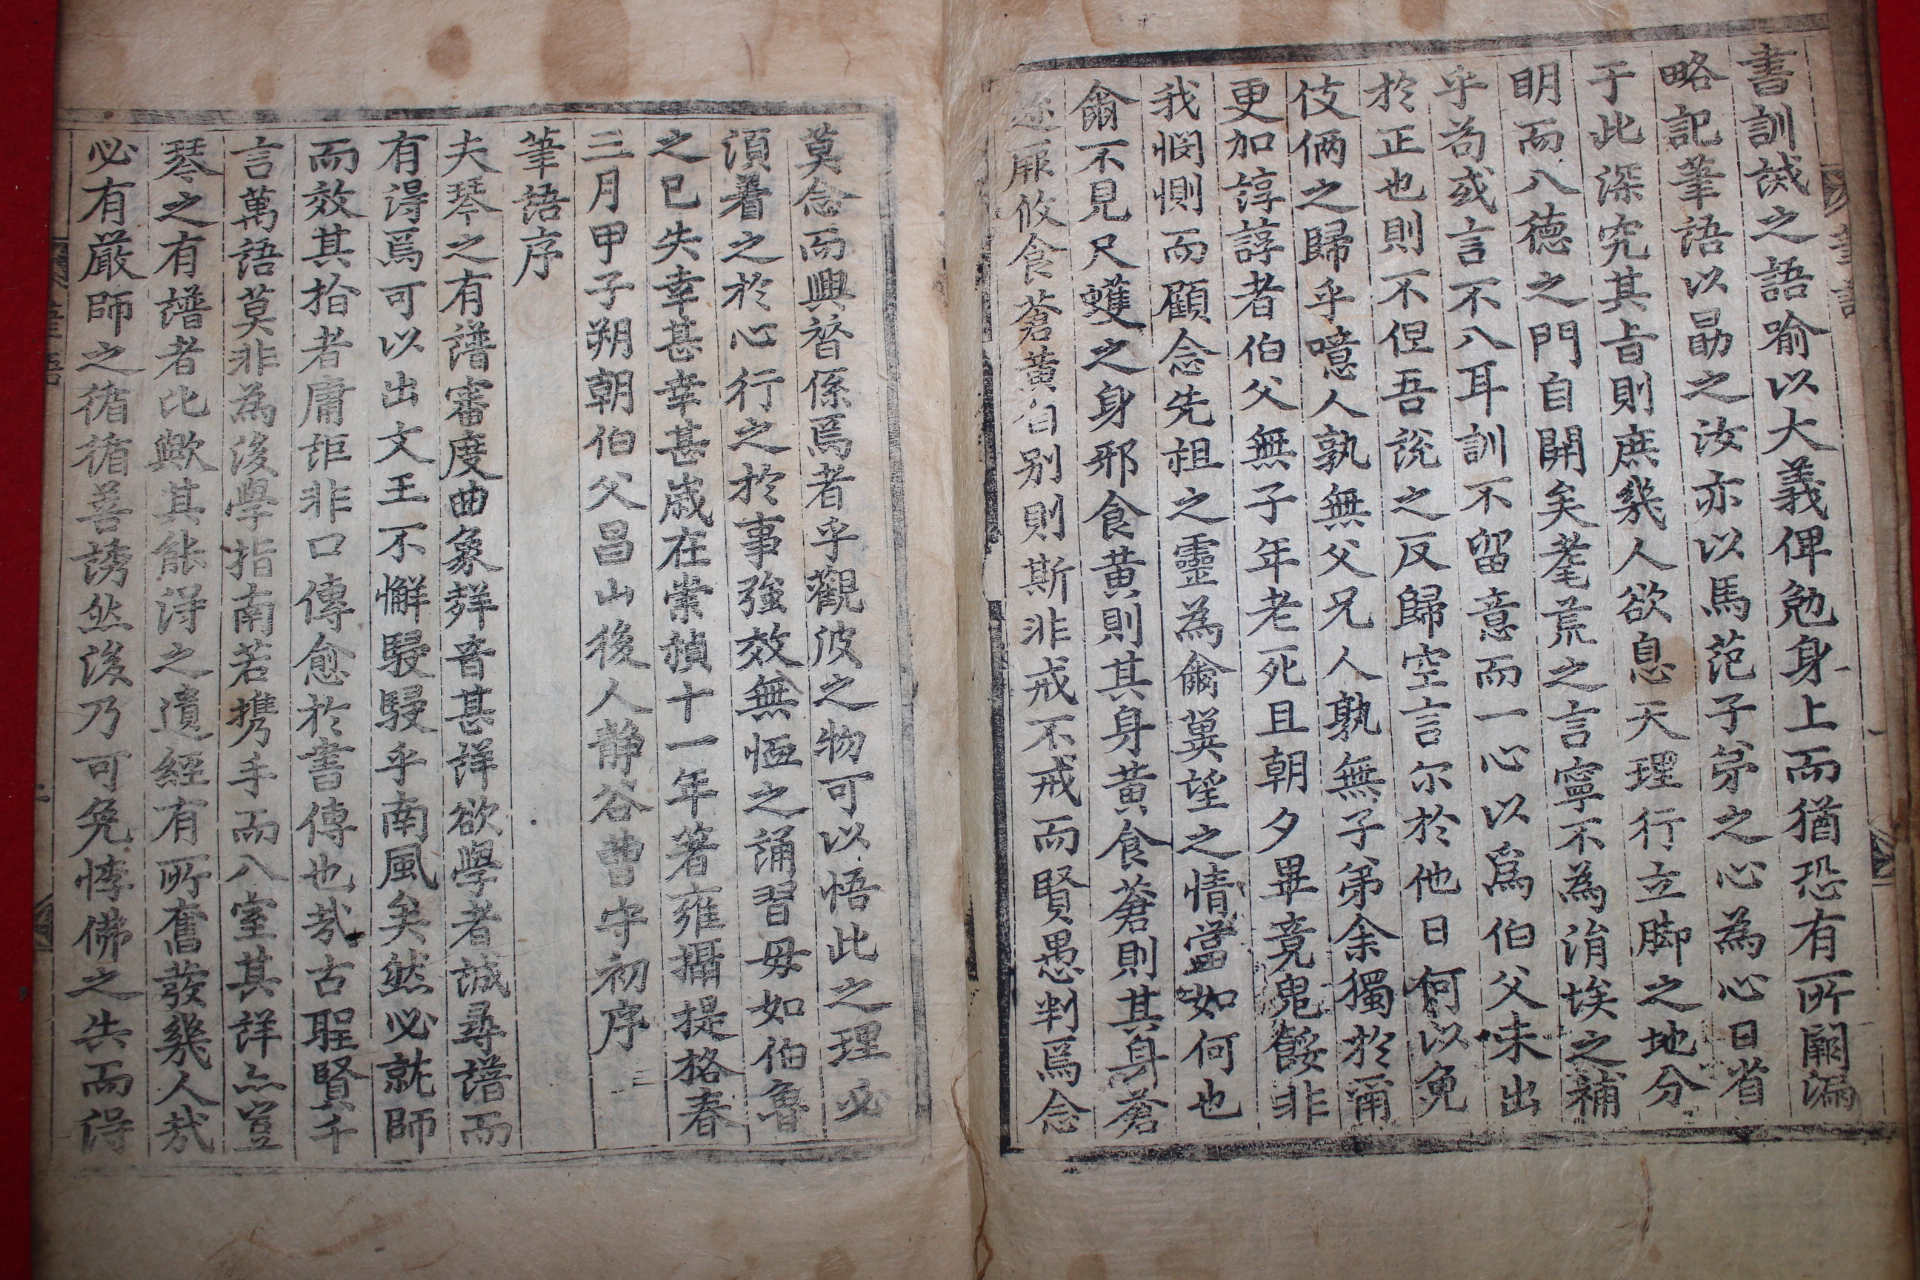 書訓誡之語喻以大義俾勉身上而猶恐有所闕漏
略記筆語以勗之汝亦以馬范子弟之心為心日省
于此深究其旨則庶幾人欲息天理行立脚之地分
明而八德之門自開矣耄荒之言寧不為涓埃之補
乎苟或言不入耳訓不留意而一心以爲伯父未出
於正也則不但吾說之反歸空言尔於他日何以免
伎倆之歸乎噫人孰無父兄人孰無子弟余獨於爾
更加諄諄者伯父無子年老死且朝夕畢竟鬼餒非
我憫惻而顧念先祖之靈為爾冀望之情當如何也
爾不見尺蠖之身邪食黃則其身黃食蒼則其身蒼
食蒼黃自別則斯非戒不戒而賢愚判焉念
莫念而興替係焉者乎觀彼之物可以悟此之理必
須着之於心行之於事強效無恆之誦習毋如伯魯
之已失幸甚幸甚歲在崇禎十一年著雍攝提格春
三月甲子朔朝伯父昌山後人靜谷曹守初序
筆語序
夫琴之有譜審度曲象觧音甚詳欲學者誠尋譜而
有得焉可以出文王不懈駸駸乎南風矣然必就師
而效其指者庸詎非口傳愈於書傳也哉古聖賢千
言萬語莫非為後學指南若携手而入室其詳亦豈
琴之有譜者比歟其能得之遺經有所奮發幾人哉
必有嚴師之循循善誘然後乃可免悖佛之失而得
筆語